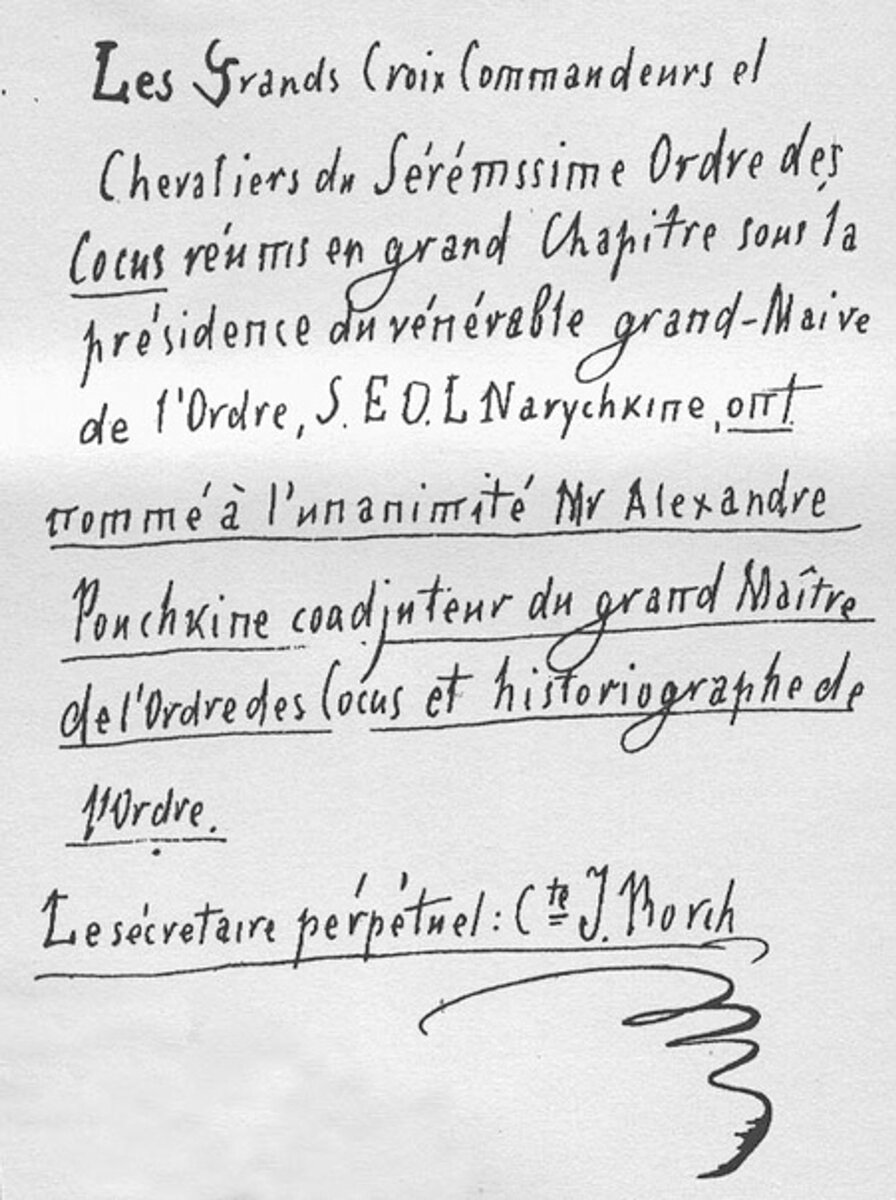 Les Grands Croix Commandeurs et
Chevaliers du Sérémssime Ordre des
Cocus réums en grand Chapitre sous la
présidence du vénérable grand-Maive
de l'Ordre, S. E D. L Narychkine, ont
nommé à l'unanimité Mr Alexandre
Pouchkine coadjuteur du grand Maître
de l'Ordre des Cocus et historiographe de
l'Ordre.
Le sécretaire pérpétuel: Cte J. Borch